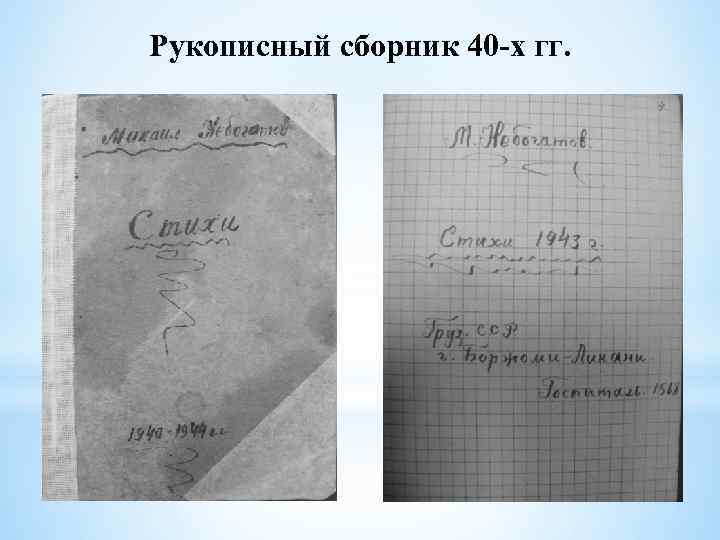 Рукописный сборник 40-х гг.
Михаил Небогатов
Стихи
1940-1944 гг
М. Небогатов.
Стихи 1943 г.
Груз. ССР
г. Боржоми-Ликани
Госпиталь 1568